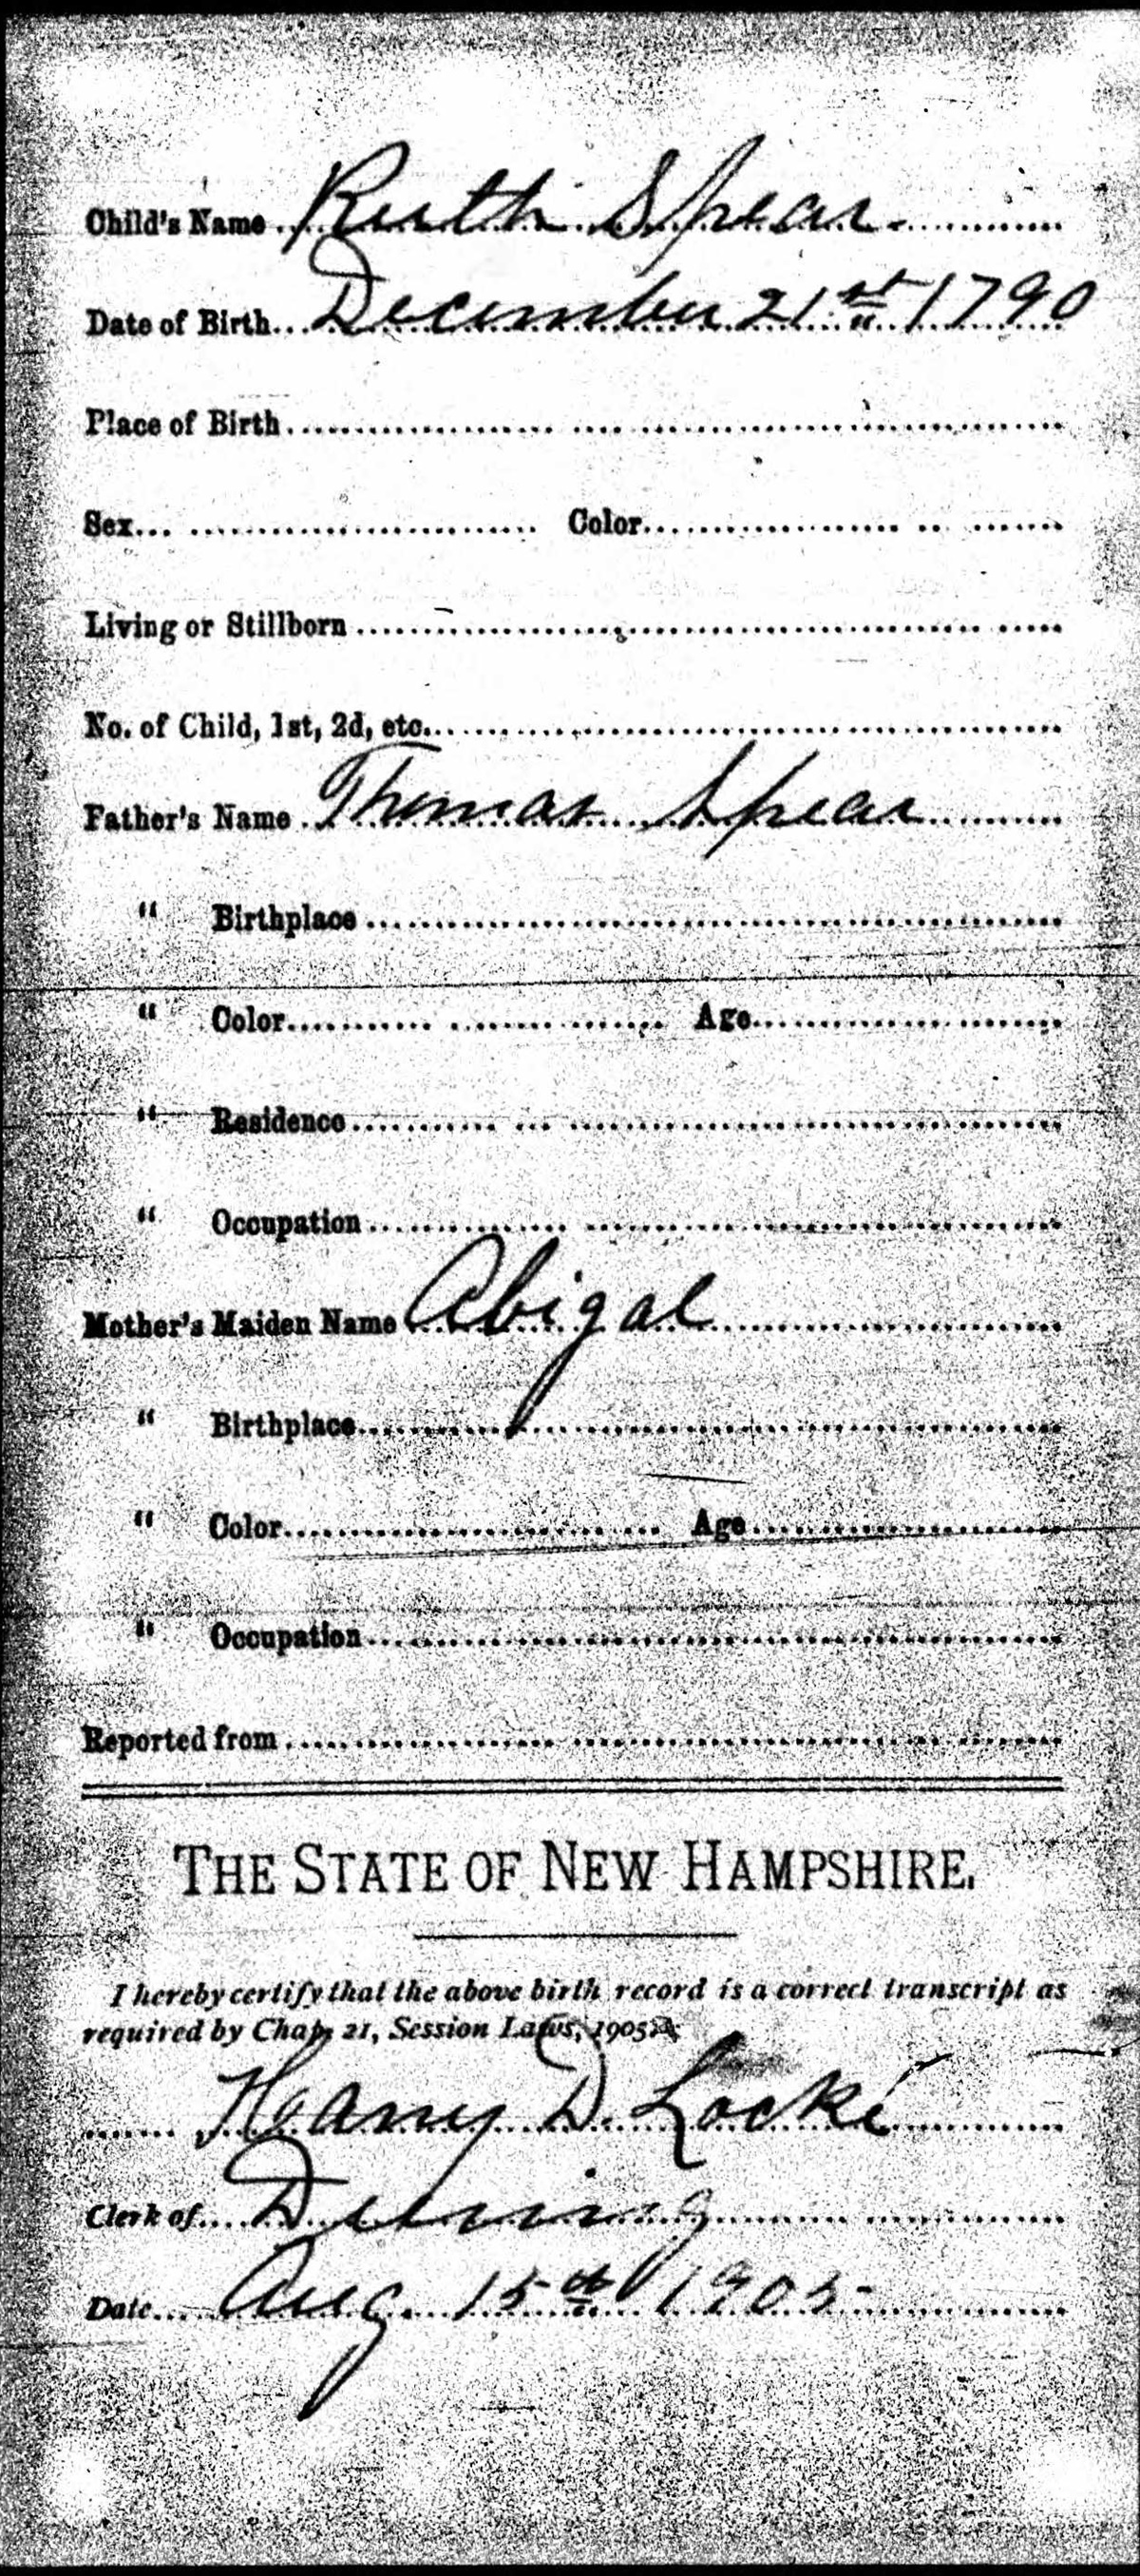 Child's Name Ruth Spear
Date of Birth December 21st 1790
Place of Birth
Sex Color
Living or Stillborn
No. of Child, 1st, 2d, etc.
Father's Name Thomas Spear
" Birthplace
" Color Age
" Residence
" Occupation
Mother's Maiden Name Abigal
" Birthplace
" Color Age
" Occupation
Reported from
THE STATE OF NEW HAMPSHIRE.
I hereby certify that the above birth record is a correct transcript as
required by Chap. 21, Session Laws, 1905.
D. Locke
Clerk of Deering
Date Aug. 15th 1905